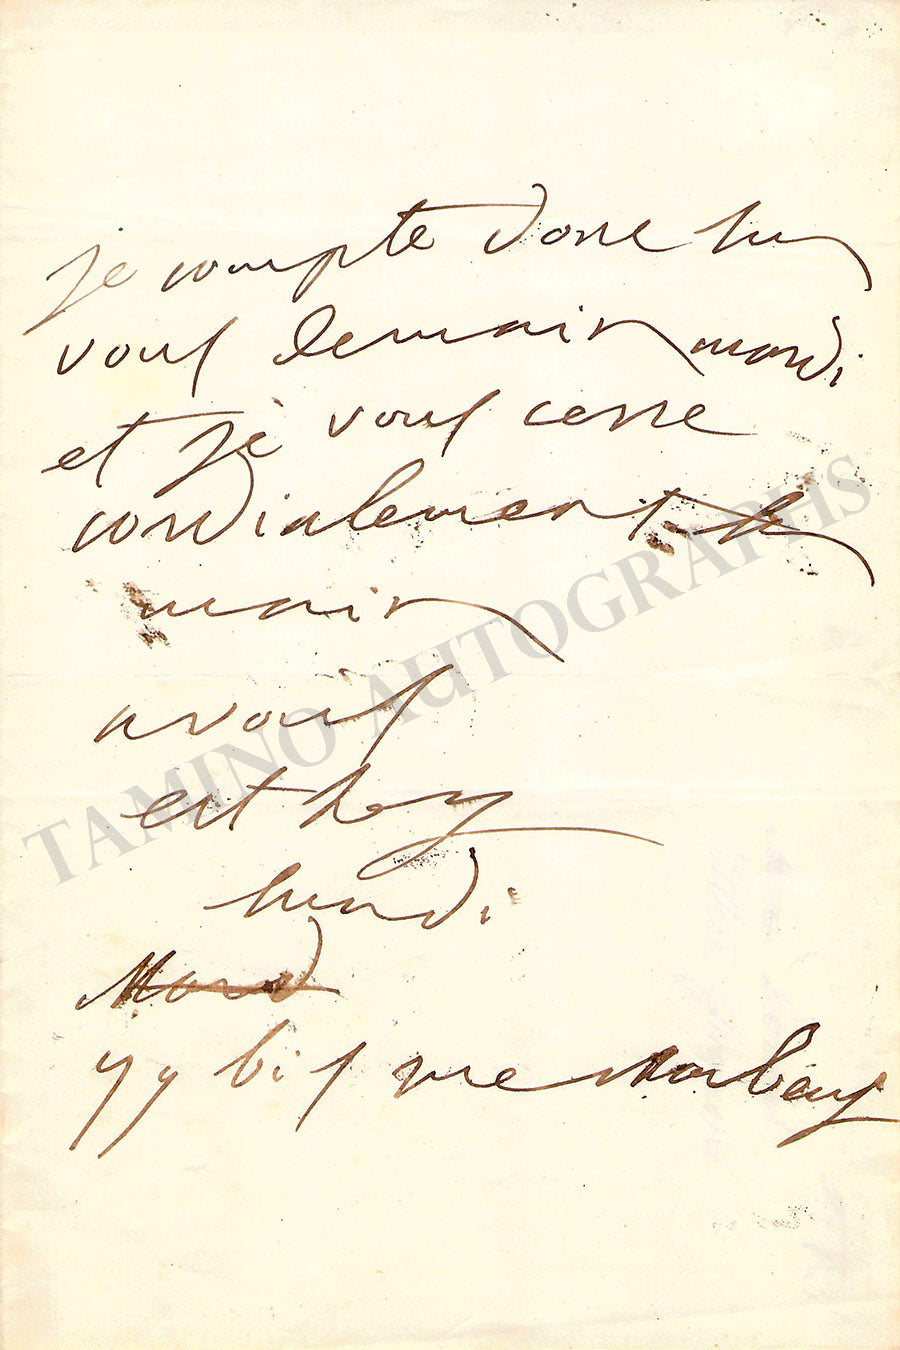 je compte donc sur
vous demain mardi
et je vous serre
cordialement la
main
a vous
lundi
Mard
99 bis rue
TAMINO AUTOGRAPHS